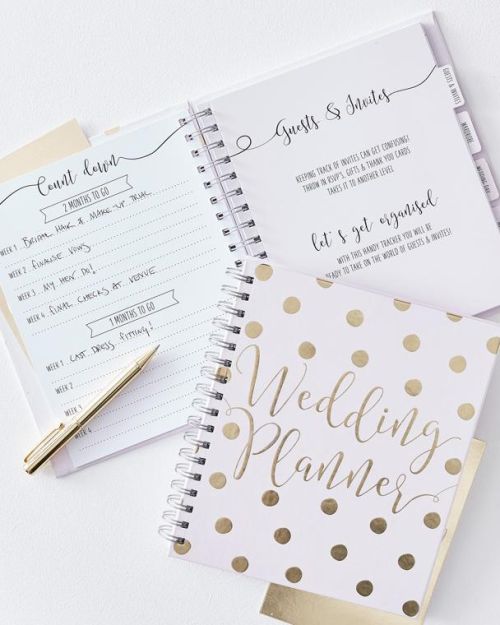 Count down
2 MONTHS TO GO
WEEK 1 BRIDAL HAIR & MAKE-UP TRIAL
WEEK 2 FINALISE VOWS
WEEK 3 MY HEN DO!
WEEK 4 FINAL CHECKS AT VENUE
1 MONTHS TO GO
WEEK 1 LAST DRESS FITTING!
WEEK 2
WEEK 3
WEEK 4
Guests & Invites
KEEPING TRACK OF INVITES CAN GET CONFUSING!
THROW IN RSVP'S, GIFTS & THANK YOU CARDS
TAKES IT TO ANOTHER LEVEL
let's get organised
WITH THIS HANDY TRACKER YOU WILL BE
READY TO TAKE ON THE WORLD OF GUESTS & INVITES!
GUESTS & INVITES
WEDDING DAY
Wedding
Planner